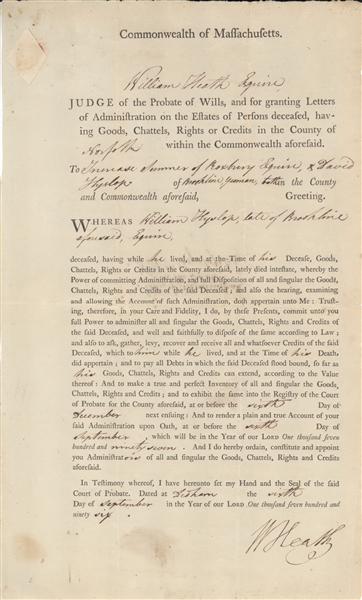 Commonwealth of Massachusetts.
William Heath Equire,
JUDGE of the Probate of Wills, and for granting Letters
of Administration on the Estates of Persons deceased, hav-
ing Goods, Chattels, Rights or Credits in the County of
Norfolk within the Commonwealth aforesaid.
To Increase Sumner of Roxbury Equire, & David
Hyslop of Brookline, yeoman, both in the County
and Commonwealth aforesaid, Greeting.
WHEREAS William Hyslop, late of Brookline
aforesaid, Equire,
deceased, having while he lived, and at the Time of his Decease, Goods,
Chattels, Rights or Credits in the County aforesaid, lately died intestate, whereby the
Power of committing Administration, and full Disposition of all and singular the Goods,
Chattels, Rights and Credits of the said Deceased, and also the hearing, examining
and allowing the Account of such Administration, doth appertain unto Me: Trust-
ing, therefore, in your Care and Fidelity, I do, by these Presents, commit unto you
full Power to administer all and singular the Goods, Chattels, Rights and Credits of
the said Deceased, and well and faithfully to dispose of the same according to Law;
and also to ask, gather, levy, recover and receive all and whatsoever Credits of the said
Deceased, which to him while he lived, and at the Time of his Death,
did appertain; and to pay all Debts in which the said Deceased stood bound, so far as
his Goods, Chattels, Rights and Credits can extend, according to the Value
thereof: And to make a true and perfect Inventory of all and singular the Goods,
Chattels, Rights and Credits; and to exhibit the same into the Registry of the Court
of Probate for the County aforesaid, at or before the sixth Day of
December next ensuing: And to render a plain and true Account of your
said Administration upon Oath, at or before the sixth Day of
September which will be in the Year of our LORD One thousand seven
hundred and ninety seven. And I do hereby ordain, constitute and appoint
you Administrators of all and singular the Goods, Chattels, Rights and Credits
aforesaid.
In Testimony whereof, I have hereunto set my Hand and the Seal of the said
Court of Probate. Dated at Dedham the sixth
Day of September in the Year of our LORD One thousand seven hundred and
ninety six.
W Heath